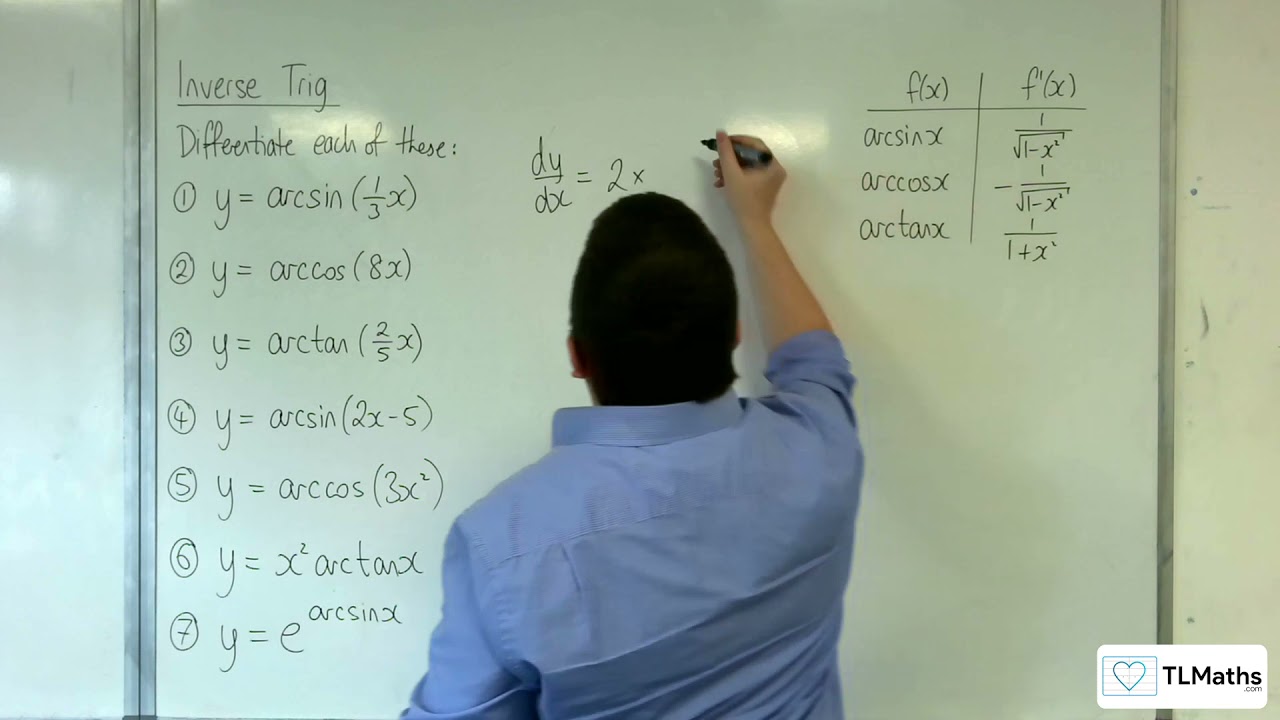 Inverse Trig
Differentiate each of these:
① y = arcsin (1/3 x)
② y = arccos (8x)
③ y = arctan (2/5 x)
④ y = arcsin (2x-5)
⑤ y = arccos (3x²)
⑥ y = x² arctanx
⑦ y = e^arcsinx
dy/dx = 2×
f(x) | f'(x)
arcsinx | 1/√(1-x²)
arccosx | -1/√(1-x²)
arctanx | 1/(1+x²)
TLMaths
.com